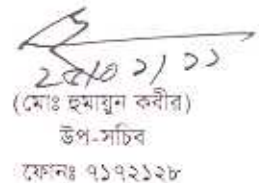 ২৫/০১/১১
(মোঃ হুমায়ুন কবীর)
উপ-সচিব
ফোনঃ ৭১৭২১২৮